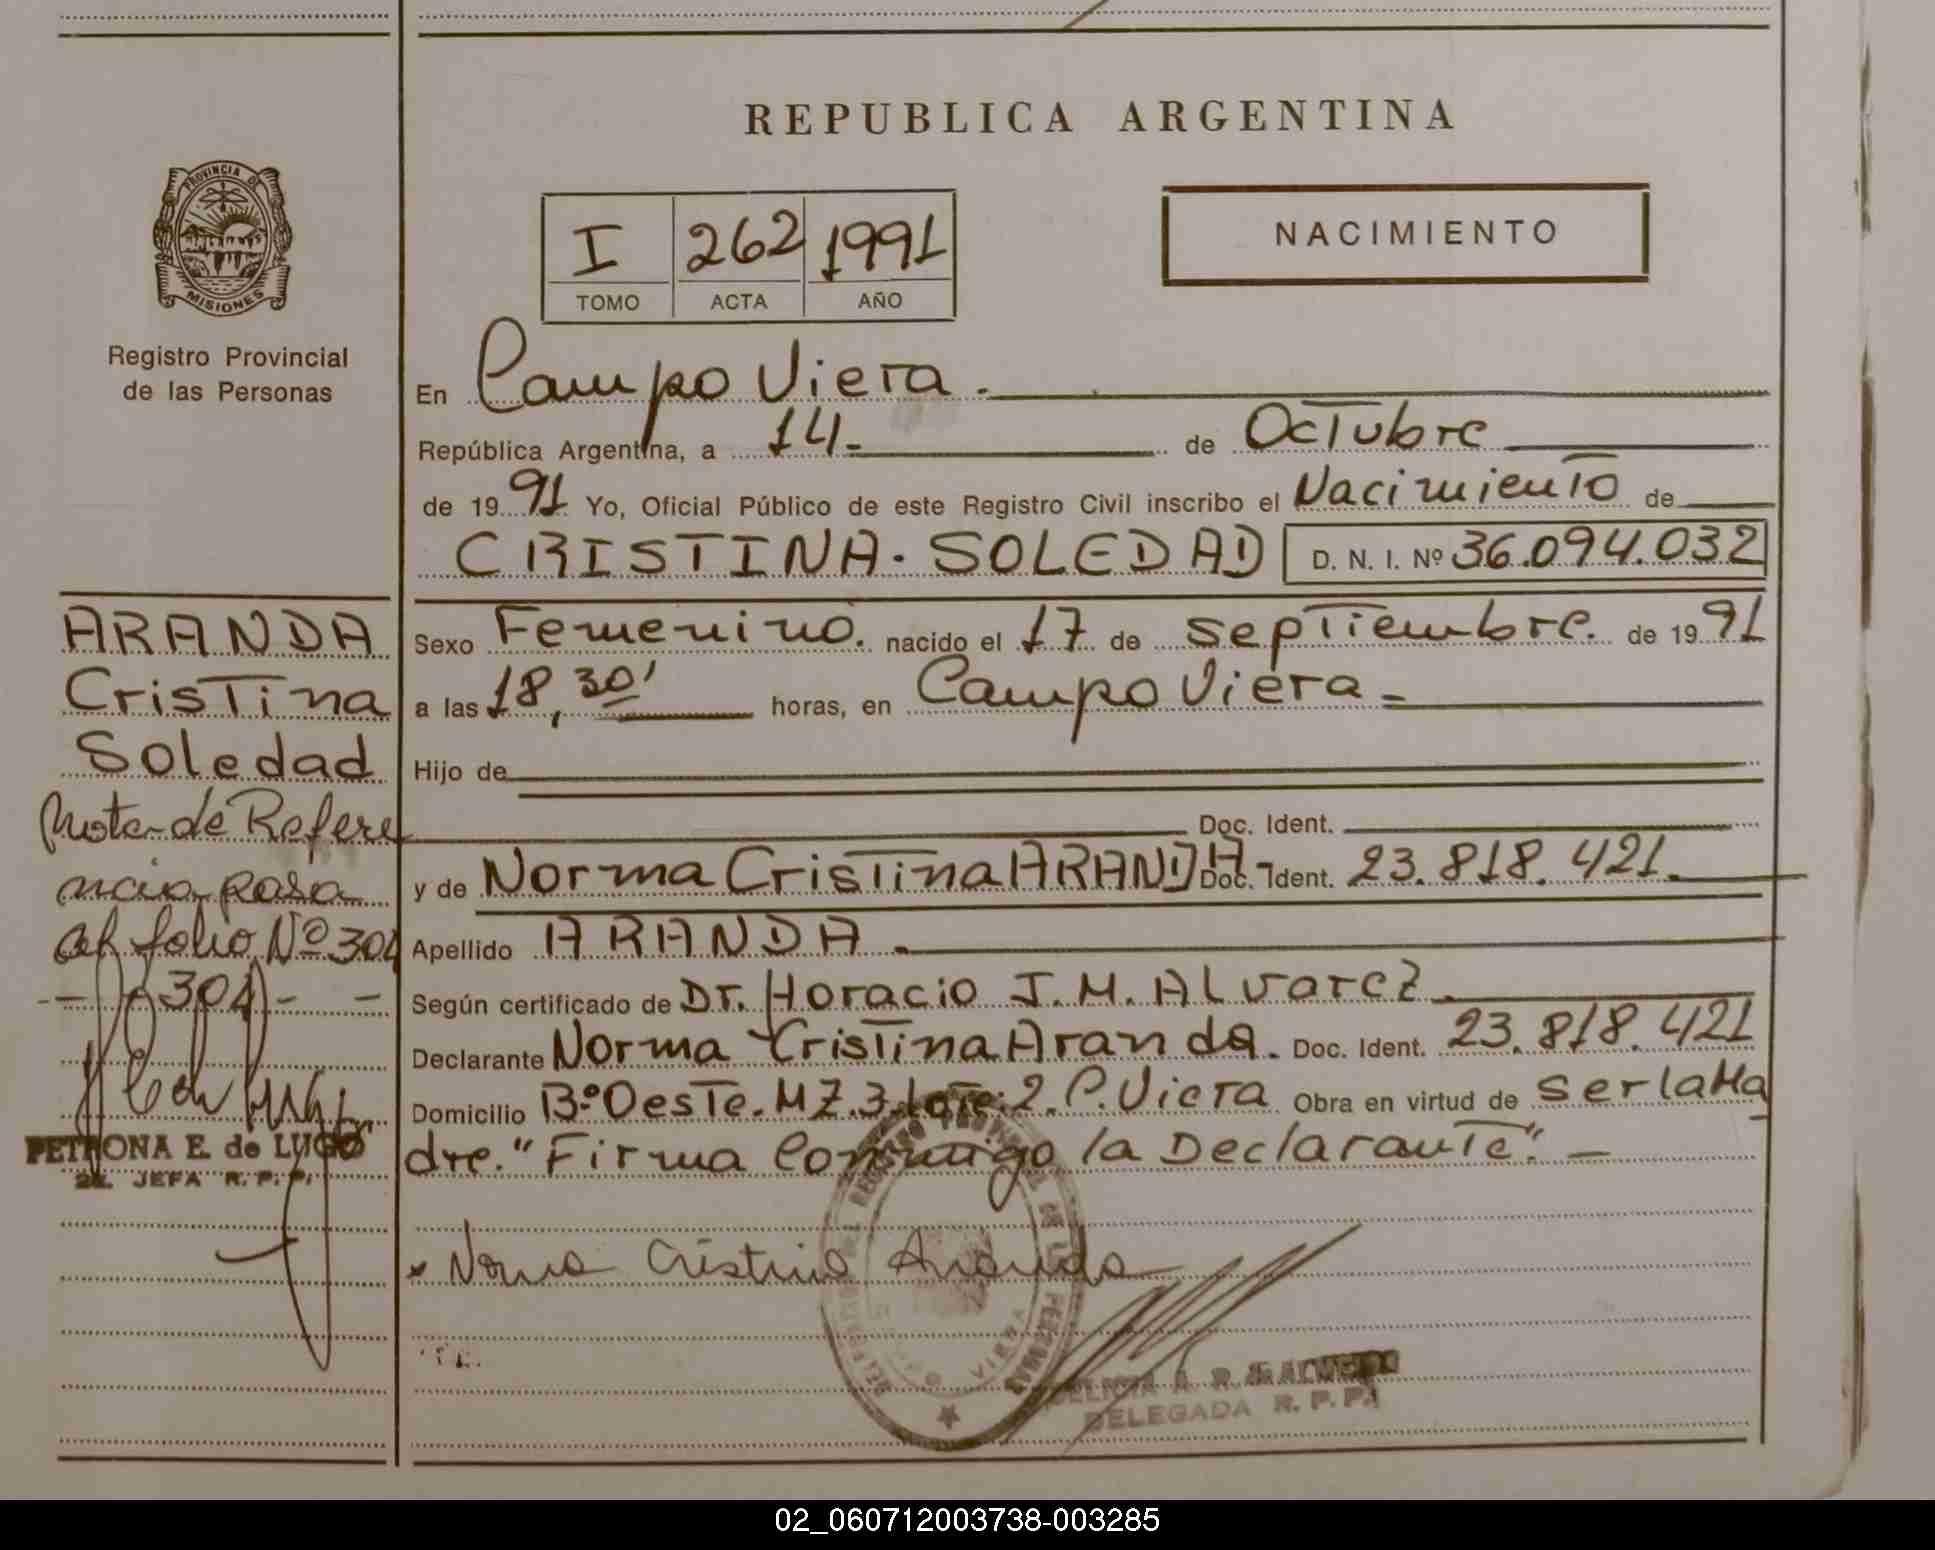 REPUBLICA ARGENTINA
PROVINCIA DE
MISIONES
Registro Provincial
de las Personas
I 262 1991
TOMO ACTA AÑO
NACIMIENTO
En Campo Viera.
República Argentina, a 14- de Octubre
de 19 91 Yo, Oficial Público de este Registro Civil inscribo el Nacimiento de
CRISTINA. SOLEDAD D. N. I. Nº 36.094.032
Sexo Femenino. nacido el 17 de septiembre. de 19 91
a las 18,30' horas, en Campo Viera -
Hijo de
Doc. Ident.
y de Norma Cristina ARANDA- Doc. Ident. 23.818.421.
Apellido ARANDA.
Según certificado de Dr. Horacio J. M. Alvarez.
Declarante Norma Cristina Aranda. Doc. Ident. 23.818.421
Domicilio Bº Oeste. MZ. 3. Lote: 2. C. Viera Obra en virtud de ser la Ma
dre. "Firma Conmigo la Declarante". -
Norma Cristina Aranda
CAMPO VIERA
DELEGADA R. P. P.
ARANDA
Cristina
Soledad
Nota de Refere
ncia pasa
al folio Nº 304
- - 304 - -
PETRONA E. de LUGO
JEFA R. P. P.
02_060712003738-003285